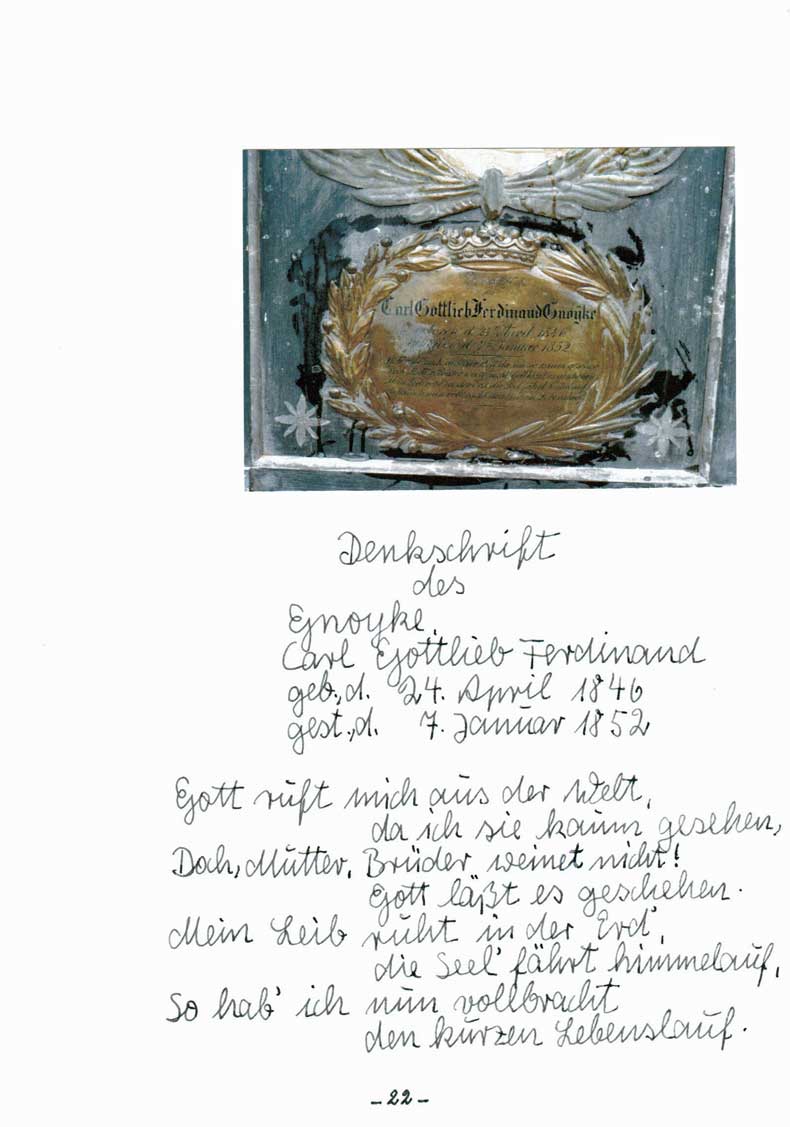 Carl Gottlieb Ferdinand Gnoyke
Januar 1852
Denkschrift
des
Gnoyke,
Carl Gottlieb Ferdinand
geb., d. 24. April 1846
gest., d. 7. Januar 1852
Gott ruft mich aus der Welt,
da ich sie kaum gesehen,
Doch, Mutter, Brüder weinet nicht!
Gott läßt es geschehen.
Mein Leib ruht in der Erd',
die Seel' fährt himmelauf,
So hab' ich nun vollbracht
den kurzen Lebenslauf.
- 22 -